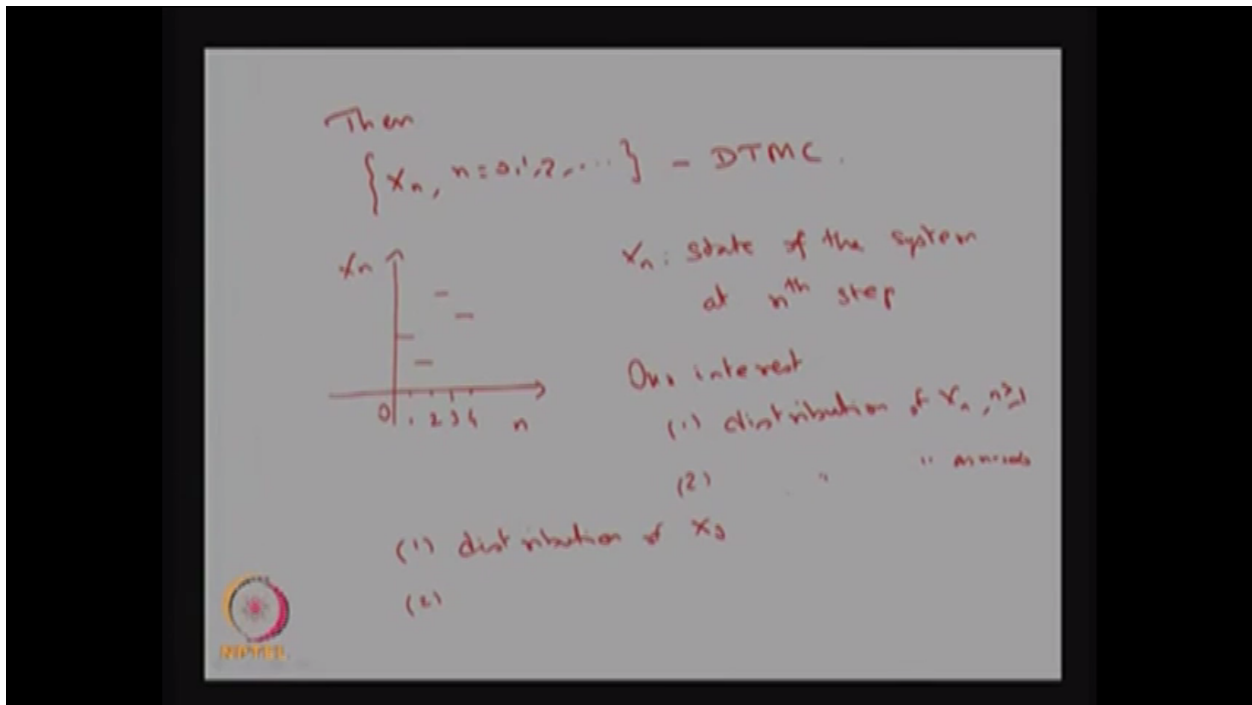 Then
{Xn, n=0,1,2,...} - DTMC.
Xn
0 1 2 3 4 n
Xn: state of the system
at nth step
Our interest
(1) distribution of Xn, n≥1
(2) " " as n→∞
(1) distribution of X0
(2)
NPTEL